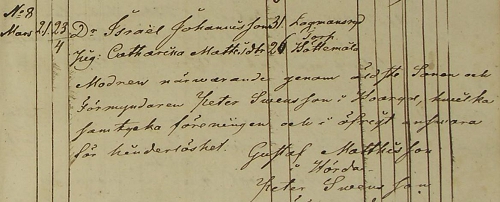 No 8
Mars 21 23/4 Dr. Israël Johansson 31 Lagmansryd
Torp
Pig: Catharina Matthisdtr 26 Hättemåla
Modren närwarande genom äldste Sonen och
Förmyndaren Peter Swensson i Hoaryd, hwilka
samtycka föreningen och i öfrigt answara
för hinderlöshet.
Gustaf Matthisson
i Hörda
Peter Swensson